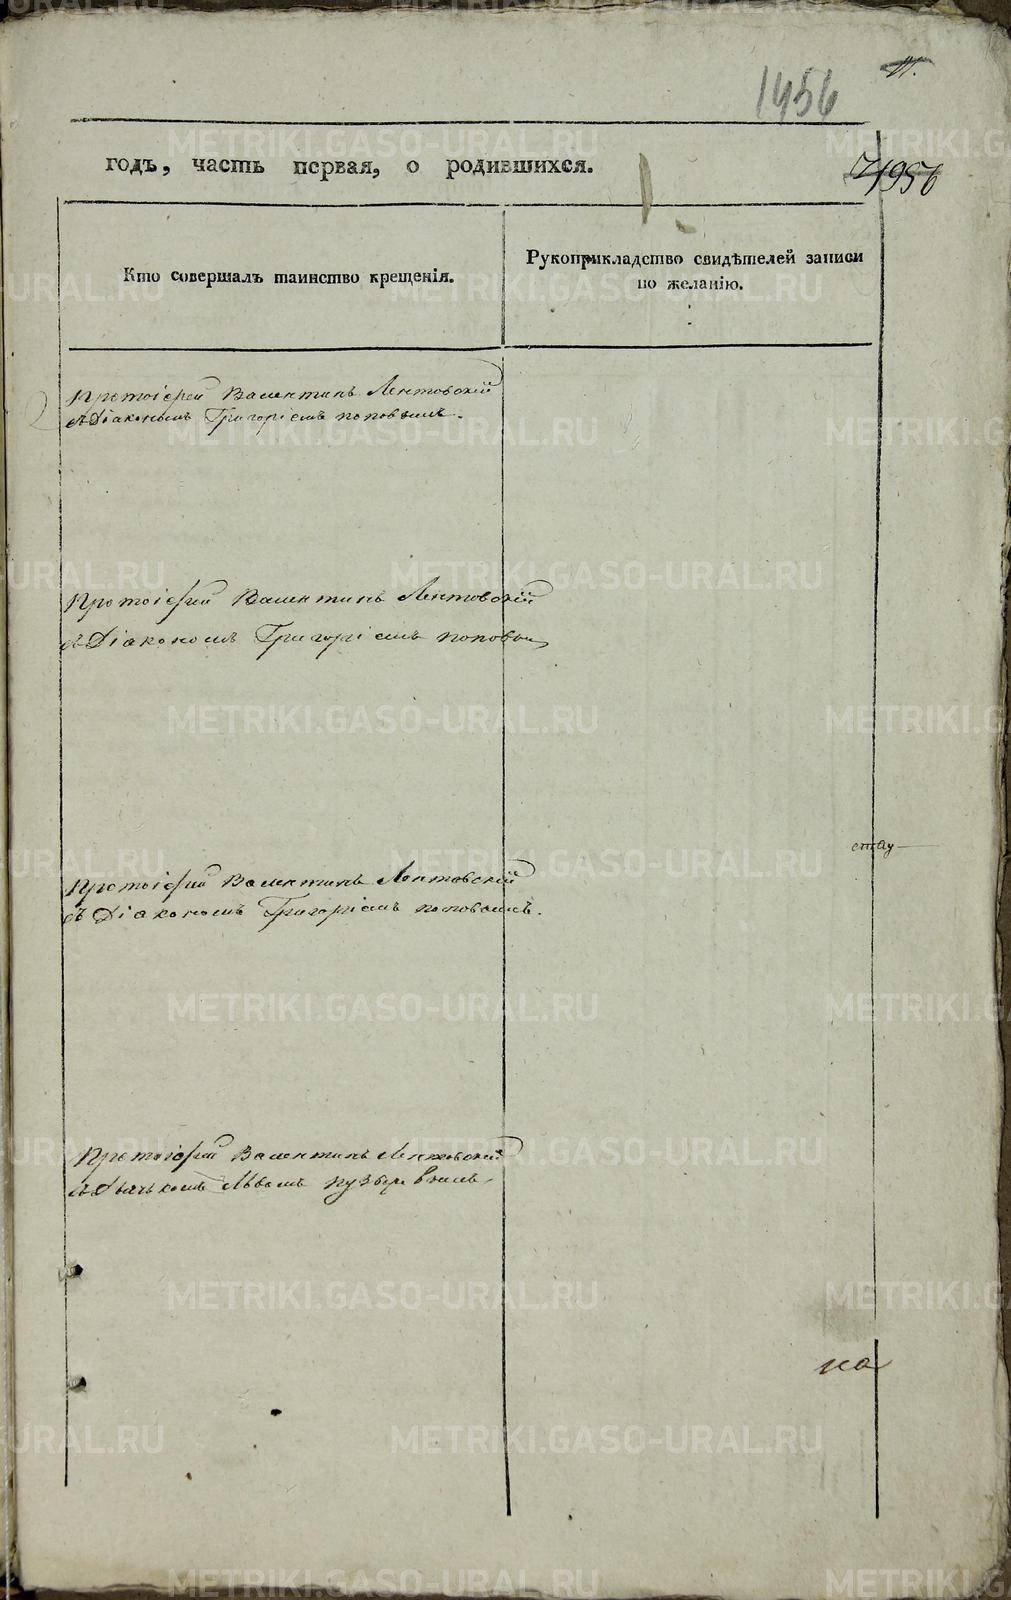 1456
годъ, часть первая, о родившихся.
1956
Кто совершалъ таинство крещенія.
Рукоприкладство свидѣтелей записи
по желанію.
Протоіерей Валентинъ Лентовскій
съ Діакономъ Григоріемъ поповымъ.
Протоіерей Валентинъ Лентовскій
съ Діакономъ Григоріемъ поповым
Протоіерей Валентинъ Лентовскій
съ Діакономъ Григоріемъ поповымъ.
Протоіерей Валентинъ Лентовскій
съ Дьячькомъ Львомъ
на
METRIKI.GASO-URAL.RU